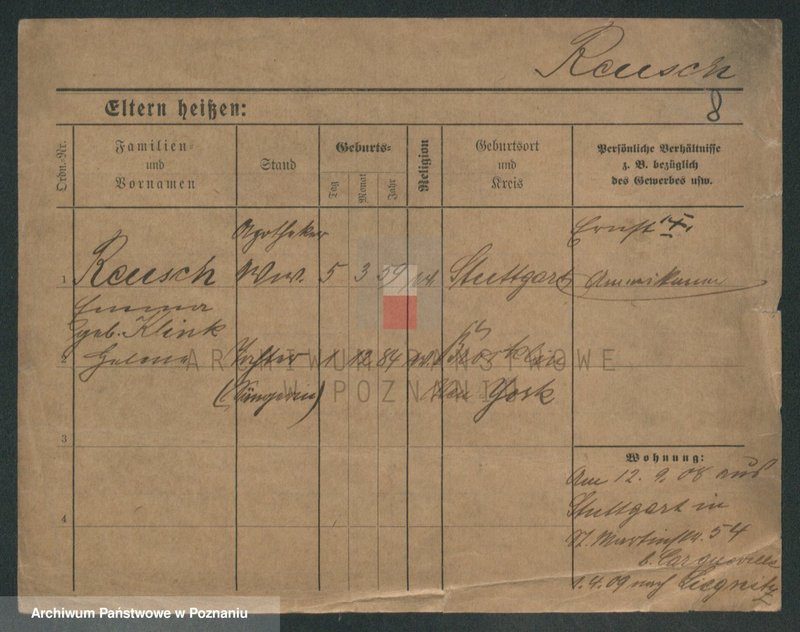 Reusch
8
Eltern heißen:
Ordn.-Nr.
Familien- und Vornamen
Stand
Geburts-
Tag
Monat
Jahr
Religion
Geburtsort und Kreis
Persönliche Verhältnisse
z. B. bezüglich
des Gewerbes usw.
Apotheker
Ernst
1 Reusch Ww. 5 3 59 ev. Stuttgart Amerikaner
Emma
geb. Klink
2 Helene Tochter 1 12 84 ev. Brooklin
(Sängerin) New York
3
4
Wohnung:
Am 12.9.08 aus
Stuttgart in
St. Martinstr. 54
b.
1.4.09 nach Liegnitz
ARCHIWUM PAŃSTWOWE
W POZNANIU
Archiwum Państwowe w Poznaniu